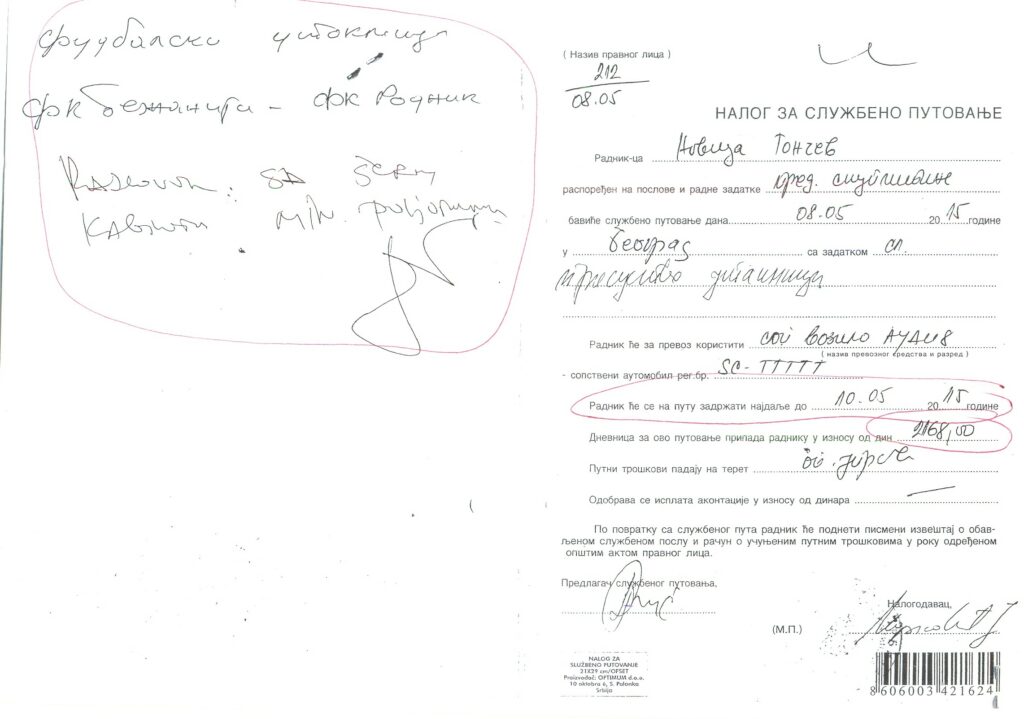 фудбалски утакмица
ФК Бежанија - ФК Родник
RAZGOVOR: SA
KABINETU MIN.
( Назив правног лица )
212
08.05
НАЛОГ ЗА СЛУЖБЕНО ПУТОВАЊЕ
Радник-ца Новица Тончев
распоређен на послове и радне задатке пред. скупштине
бавиће службено путовање дана 08.05 2015 године
у Београд са задатком сл.
присуство утакмици
Радник ће за превоз користити сл. возило АУДИ 8
( назив превозног средства и разред )
- сопствени аутомобил рег.бр. SC-TTTTT
Радник ће се на путу задржати најдаље до 10.05 2015 године
Дневница за ово путовање припада раднику у износу од дин 2168,00
Путни трошкови падају на терет
Одобрава се исплата аконтације у износу од динара —
По повратку са службеног пута радник ће поднети писмени извештај о обав-
љеном службеном послу и рачун о учуњеним путним трошковима у року одређеном
општим актом правног лица.
Предлагач службеног путовања,
Налогодавац,
(М.П.)
NALOG ZA
SLUŽBENO PUTOVANJE
21X29 cm/OFSET
Proizvođač: OPTIMUM d.o.o.
10 oktobra 6, S. Palanka
Srbija
8 606003 421624